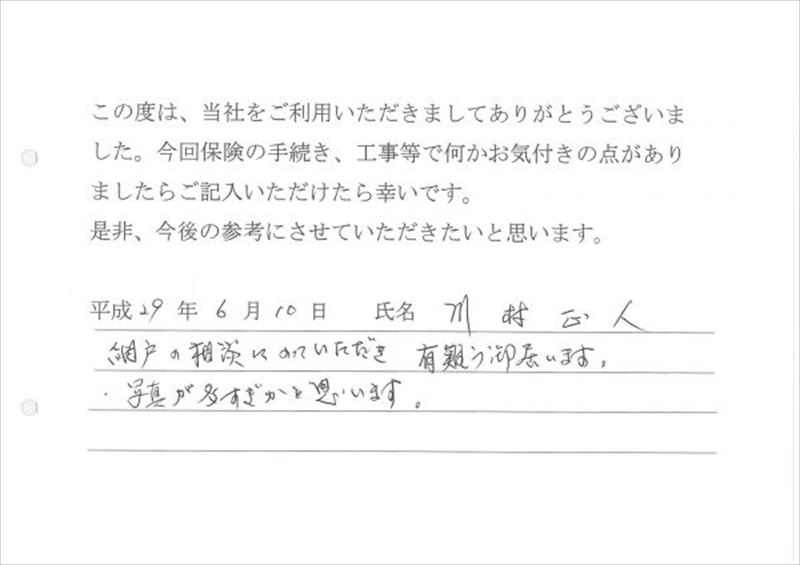 この度は、当社をご利用いただきましてありがとうございま
した。今回保険の手続き、工事等で何かお気付きの点があり
ましたらご記入いただけたら幸いです。
是非、今後の参考にさせていただきたいと思います。
平成29年6月10日 氏名 川村正人
網戸の相談にのっていただき 有難う御座います。
・写真が多すぎかと思います。